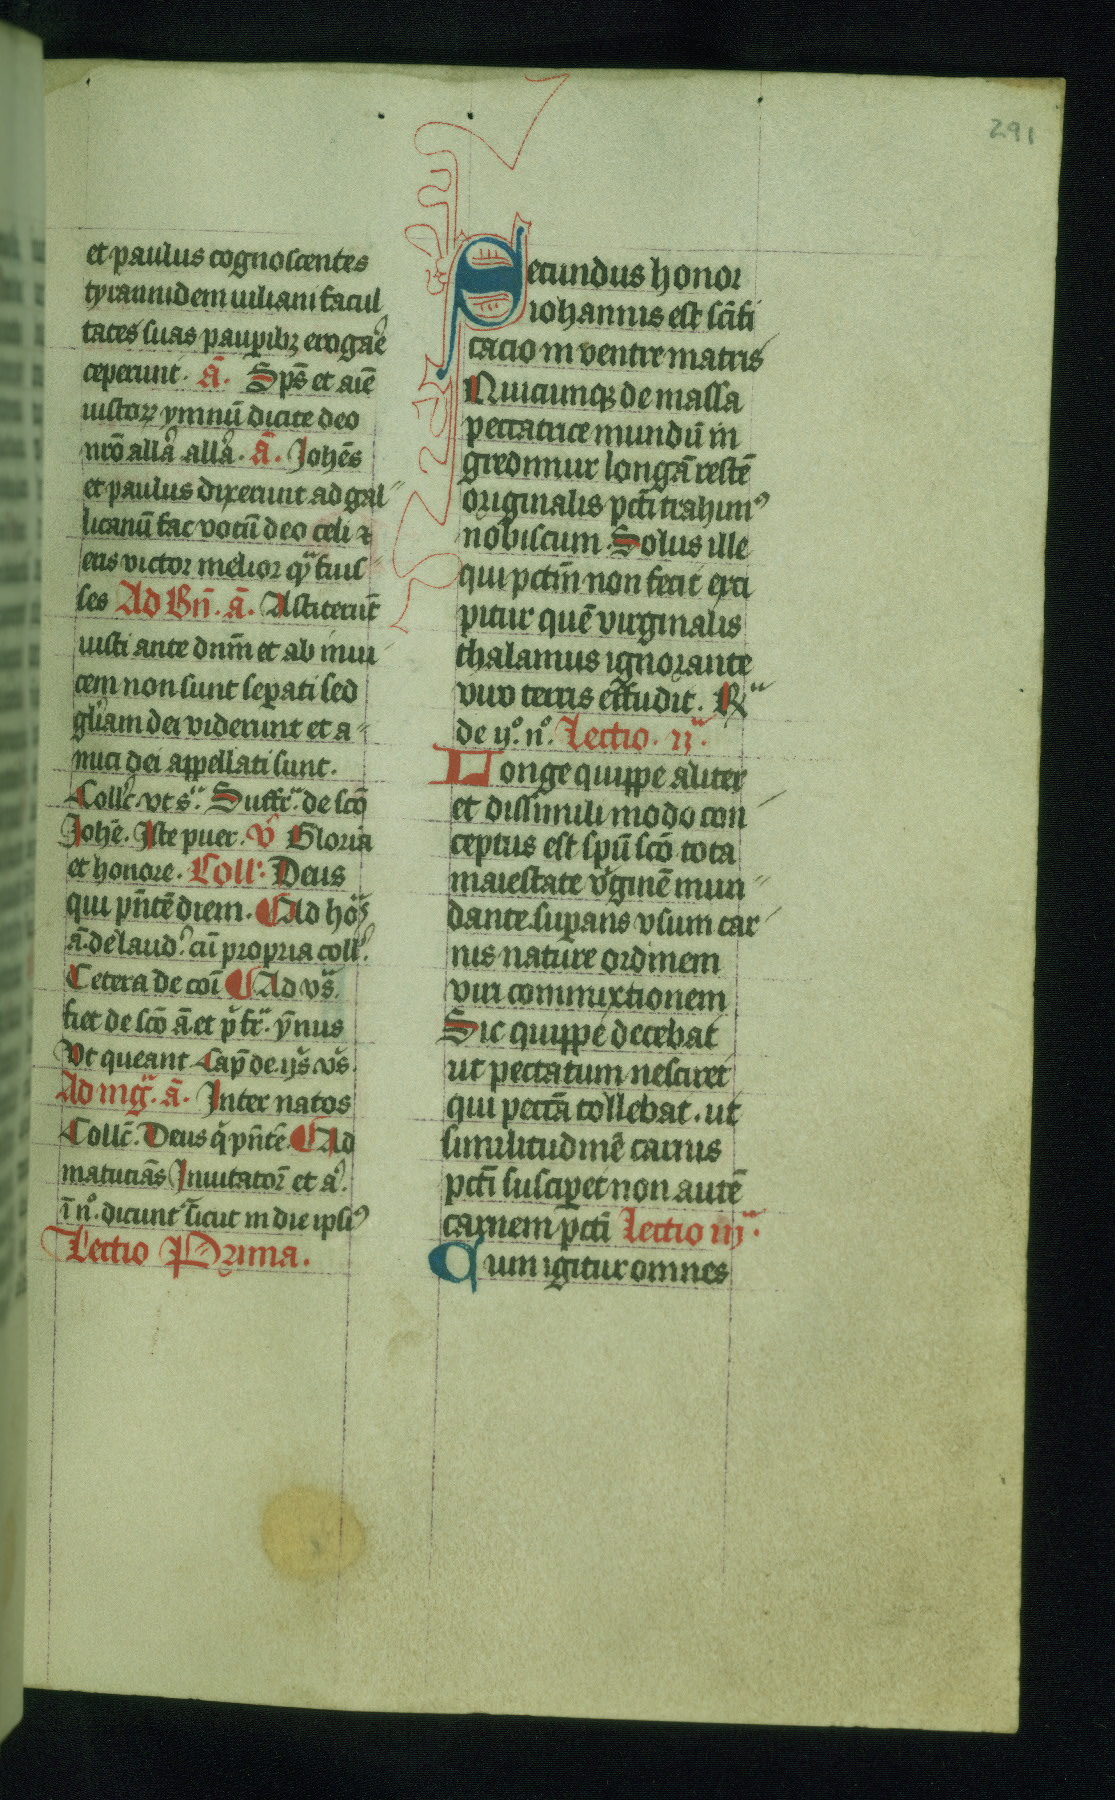 291
et paulus cognoscentes
tyrannidem iuliani facul
tates suas paup̲ibꝫ erogar̄e
ceperunt. a᷃. Sp̄s et aīe
iustoꝝ ymnū dicite deo
nr̄o all̄a all̄a. a᷃. Joh̄es
et paulus dixerunt ad gal
licanū fac votū deo celi ⁊
eris victor melior q̄ fuis
ses Ad Bn̄. a᷃. Astiterūt
iusti ante dn̄m et ab inui
cem non sunt sep̲ati sed
gl̄iam dei viderunt et a
mici dei appellati sunt.
Coll̄c. vt s̄. Suffr̄. de sc̄o
Joh̄e. Iste puer. v̄ Gloria
et honore. Coll: Deus
qui pn̄tē diem. Ad ho᷒
a᷃. de laud᷒. cū propria coll᷒.
Cetera de coī Ad vs̄.
fiet de sc̄o a᷃. et p̄ fr̄. ȳnus
Vt queant Cap̄ de ijs̄ vs̄.
Ad mḡ. a᷃. Inter natos
Coll̄c. Deus q̄ pn̄tē. Ad
matutiās Inuitator̄ et a᷒.
ī n̊. dicunt᷒ sicut in die ipsi᷒
Lectio Prima.
Secundus honor
iohannis est sc̄ifi
cacio in ventre matris
Nuicunqꝫ de massa
peccatrice mundū in
gredimur longā restē
originalis pcc̄i trahim᷒
nobiscum. Solus ille
qui pctm̄ non fecit exci
pitur quē virginalis
thalamus ignorante
viro terris effudit. R̄
de ij᷒. n̊. Lectio. ij.
Longe quippe aliter
et dissimili modo con
ceptus est sp̄u sc̄o tota
maiestate v᷒ginē mun
dante sup̲ans vsum car
nis nature ordinem
viri commixtionem
Sic quippe decebat
ut peccatum nesciret
qui pecc̄a tollebat. ut
similitudinē carnis
pcc̄i suscip̲et non autē
carnem pcc̄i Lectio iij.
Cum igitur omnes